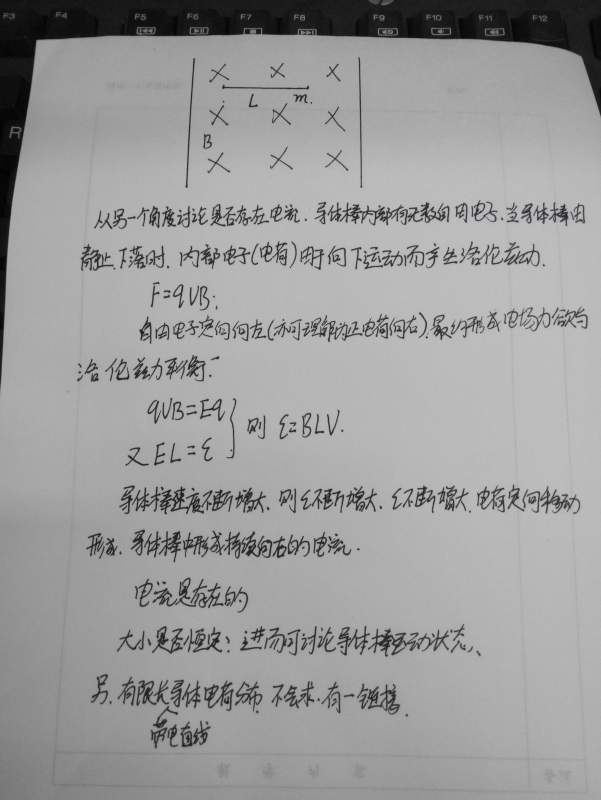 F3 F4 F5 F6 F7 F8 F9 F10 F11 F12
R
L m.
B
从另一个角度讨论是否存在电流.导体棒内部有无数自由电子.当导体棒由
静止下落时.内部电子(电荷)由于向下运动而产生洛伦兹力.
F=qVB;
自由电子定向向左(亦可理解为正电荷向右).最终形成电场力欲与
洛伦兹力平衡.
qVB=Eq
又EL=ε } 则 ε=BLV.
导体棒速度不断增大.则ε不断增大.ε不断增大.电荷定向移动
形成.导体棒中形成持续向右的电流.
电流是存在的
大小是否恒定?进而可讨论导体棒运动状态、
另.有限长导体电荷分布.不会求.有一链接.
带电直线